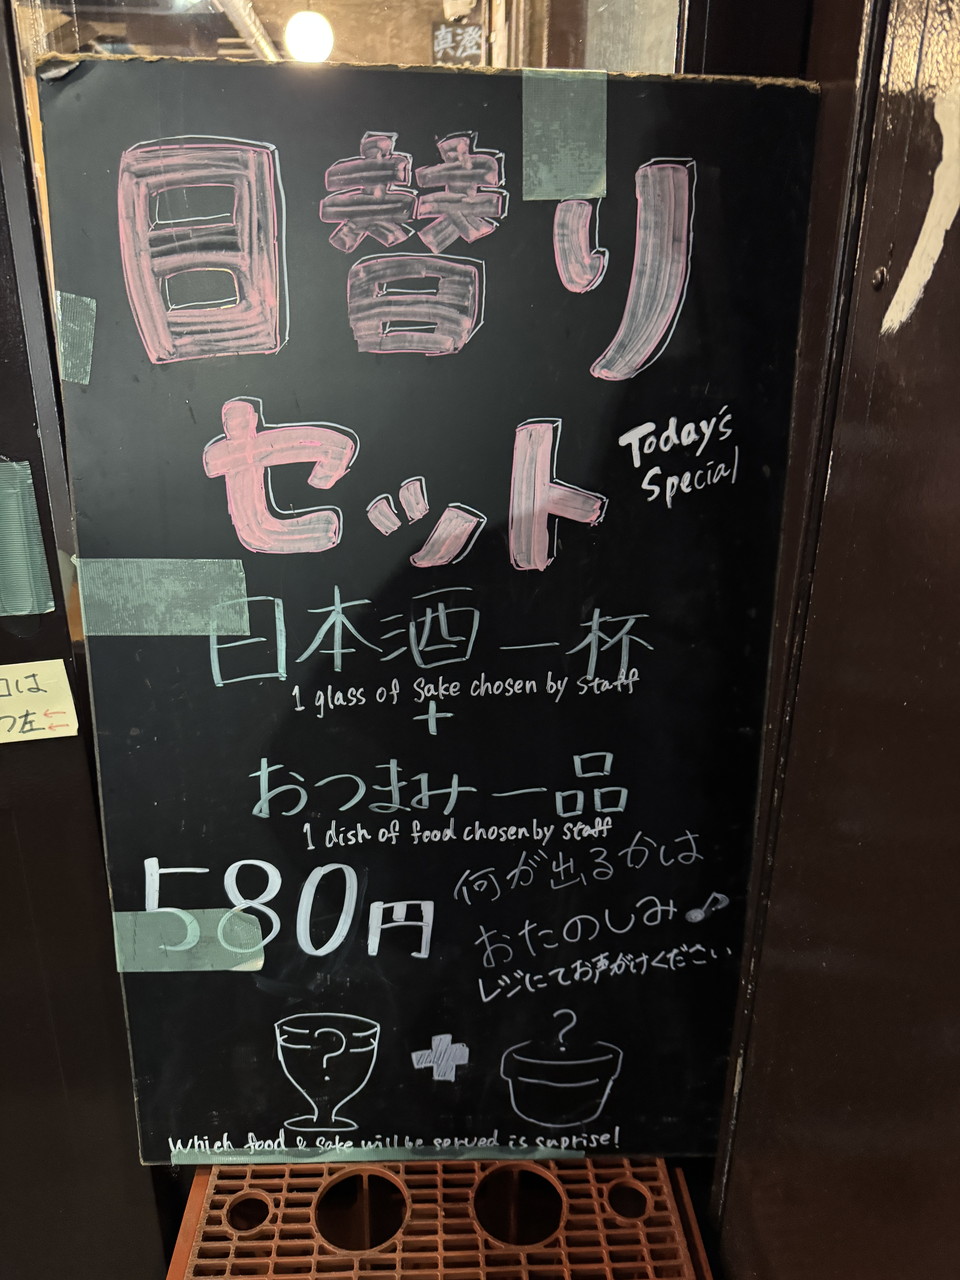 真澄
日替り
セット
Today's
Special
日本酒一杯
1 glass of Sake chosen by staff
+
おつまみ一品
1 dish of food chosen by staff
580円
何が出るかは
おたのしみ♪
レジにてお声がけください
?
?
Which food & sake will be served is suprise!
は
つ左←